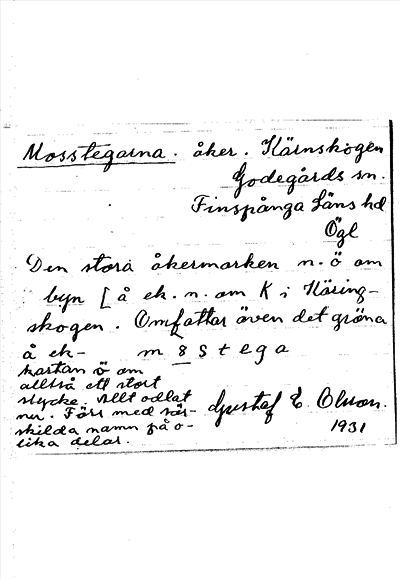 Mosstegarna. åker. Kärnskogen
Godegårds sn.
Finspånga läns hd
Ögl
Den stora åkermarken n.ö om
byn [å ek. n. om K i Häring-
skogen. Omfattar även det gröna
å ek-
kartan ö om
alltså ett stort
stycke. Allt odlat
nu. Förr med sär-
skilda namn på o-
lika delar.
m 8 s t e g a
Gustaf E. Olson.
1931